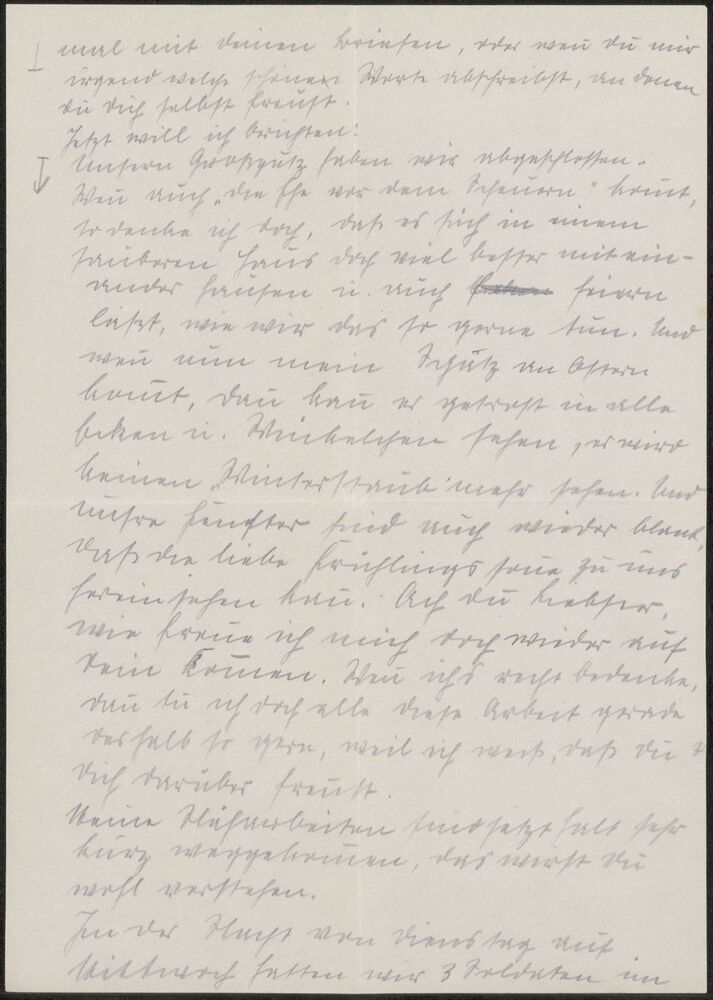 mal mit deinen Briefen, oder weñ du mir
irgend welche schönen Worte abschreibst, an denen
du dich selbst freust.
Jetzt will ich berichten:
Unsern Großputz haben wir abgeschlossen.
Weñ auch „die Ehe vor dem Scheuern" kom̄t,
so denke ich doch, daß es sich in einem
sauberen Haus doch viel besser mitein-
ander hausen u. auch feiern
läßt, wie wir das so gerne tun. Und
weñ nun mein Schatz an Ostern
kom̄t, dañ kañ er getrost in alle
Ecken u. Winkelchen sehen, er wird
keinen „Winterstaub" mehr sehen. Und
unsre Fenster sind auch wieder blank,
daß die liebe Frühlingssoñe zu uns
hereinsehen kañ. Ach du Liebster,
wie freue ich mich doch wieder auf
dein Kom̄en. Weñ ichs recht bedenke,
dañ tu ich doch alle diese Arbeit gerade
deshalb so gern, weil ich weiß, daß du
dich darüber freust.
Meine Näharbeiten sind jetzt halt sehr
kurz weggekom̄en, das wirst du
wohl verstehen.
In der Nacht von Dienstag auf
Mittwoch hatten wir 3 Soldaten im